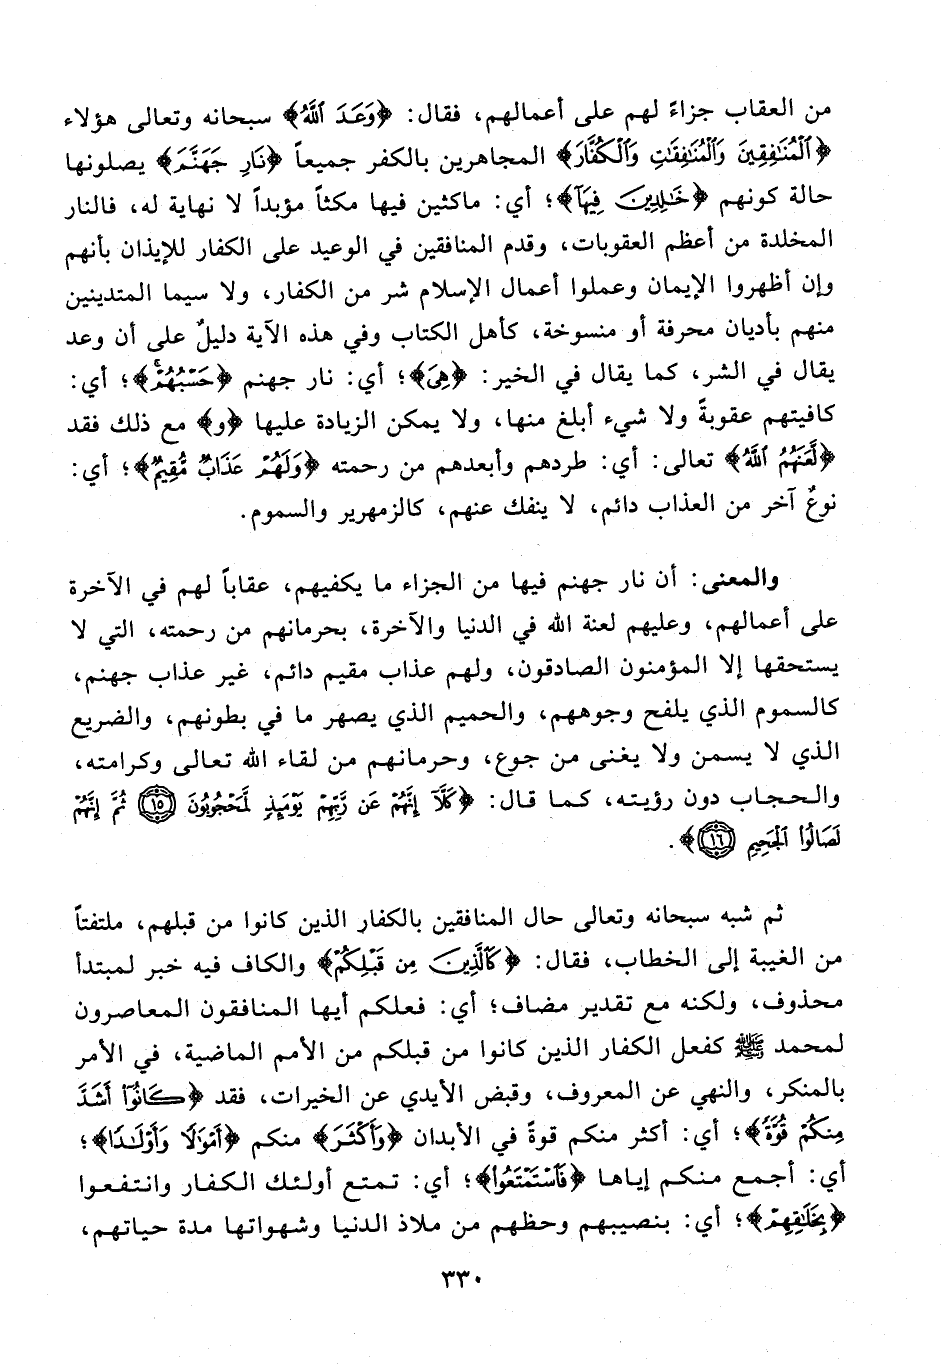 من العقاب جزاءً لهم على أعمالهم، فقال: ﴿وَعَدَ ٱللَّهُ﴾ سبحانه وتعالى هؤلاء
﴿ٱلْمُنَـٰفِقِينَ وَٱلْمُنَـٰفِقَـٰتِ وَٱلْكُفَّارَ﴾ المجاهرين بالكفر جميعاً ﴿نَارَ جَهَنَّمَ﴾ يصلونها
حالة كونهم ﴿خَـٰلِدِينَ فِيهَآ﴾؛ أي: ماكثين فيها مكثاً مؤبداً لا نهاية له، فالنار
المخلدة من أعظم العقوبات، وقدم المنافقين في الوعيد على الكفار للإيذان بأنهم
وإن أظهروا الإيمان وعملوا أعمال الإسلام شر من الكفار، ولا سيما المتدينين
منهم بأديان محرفة أو منسوخة، كأهل الكتاب وفي هذه الآية دليلٌ على أن وعد
يقال في الشر، كما يقال في الخير: ﴿هِىَ﴾؛ أي: نار جهنم ﴿حَسْبُهُمْ ۚ﴾؛ أي:
كافيتهم عقوبةً ولا شيء أبلغ منها، ولا يمكن الزيادة عليها ﴿و﴾ مع ذلك فقد
﴿لَّعَنَهُمُ ٱللَّهُ﴾ تعالى: أي: طردهم وأبعدهم من رحمته ﴿وَلَهُمْ عَذَابٌ مُّقِيمٌ﴾؛ أي:
نوعٌ آخر من العذاب دائم، لا ينفك عنهم، كالزمهرير والسموم.
والمعنى: أن نار جهنم فيها من الجزاء ما يكفيهم، عقاباً لهم في الآخرة
على أعمالهم، وعليهم لعنة الله في الدنيا والآخرة، بحرمانهم من رحمته، التي لا
يستحقها إلا المؤمنون الصادقون، ولهم عذاب مقيم دائم، غير عذاب جهنم،
كالسموم الذي يلفح وجوههم، والحميم الذي يصهر ما في بطونهم، والضريع
الذي لا يسمن ولا يغنى من جوع، وحرمانهم من لقاء الله تعالى وكرامته،
والحجاب دون رؤيته، كما قال: ﴿كَلَّآ إِنَّهُمْ عَن رَّبِّهِمْ يَوْمَئِذٍ لَّمَحْجُوبُونَ ١٥ ثُمَّ إِنَّهُمْ
لَصَالُوا۟ ٱلْجَحِيمِ ١٦﴾.
ثم شبه سبحانه وتعالى حال المنافقين بالكفار الذين كانوا من قبلهم، ملتفتاً
من الغيبة إلى الخطاب، فقال: ﴿كَٱلَّذِينَ مِن قَبْلِكُمْ﴾ والكاف فيه خبر لمبتدأ
محذوف، ولكنه مع تقدير مضاف؛ أي: فعلكم أيها المنافقون المعاصرون
لمحمد ﷺ كفعل الكفار الذين كانوا من قبلكم من الأمم الماضية، في الأمر
بالمنكر، والنهي عن المعروف، وقبض الأيدي عن الخيرات، فقد ﴿كَانُوٓا۟ أَشَدَّ
مِنكُمْ قُوَّةً﴾؛ أي: أكثر منكم قوةً في الأبدان ﴿وَأَكْثَرَ﴾ منكم ﴿أَمْوَٰلًا وَأَوْلَـٰدًا﴾؛
أي: أجمع منكم إياها ﴿فَٱسْتَمْتَعُوا۟﴾؛ أي: تمتع أولئك الكفار وانتفعوا
﴿بِخَلَـٰقِهِمْ﴾؛ أي: بنصيبهم وحظهم من ملاذ الدنيا وشهواتها مدة حياتهم،
٣٣٠